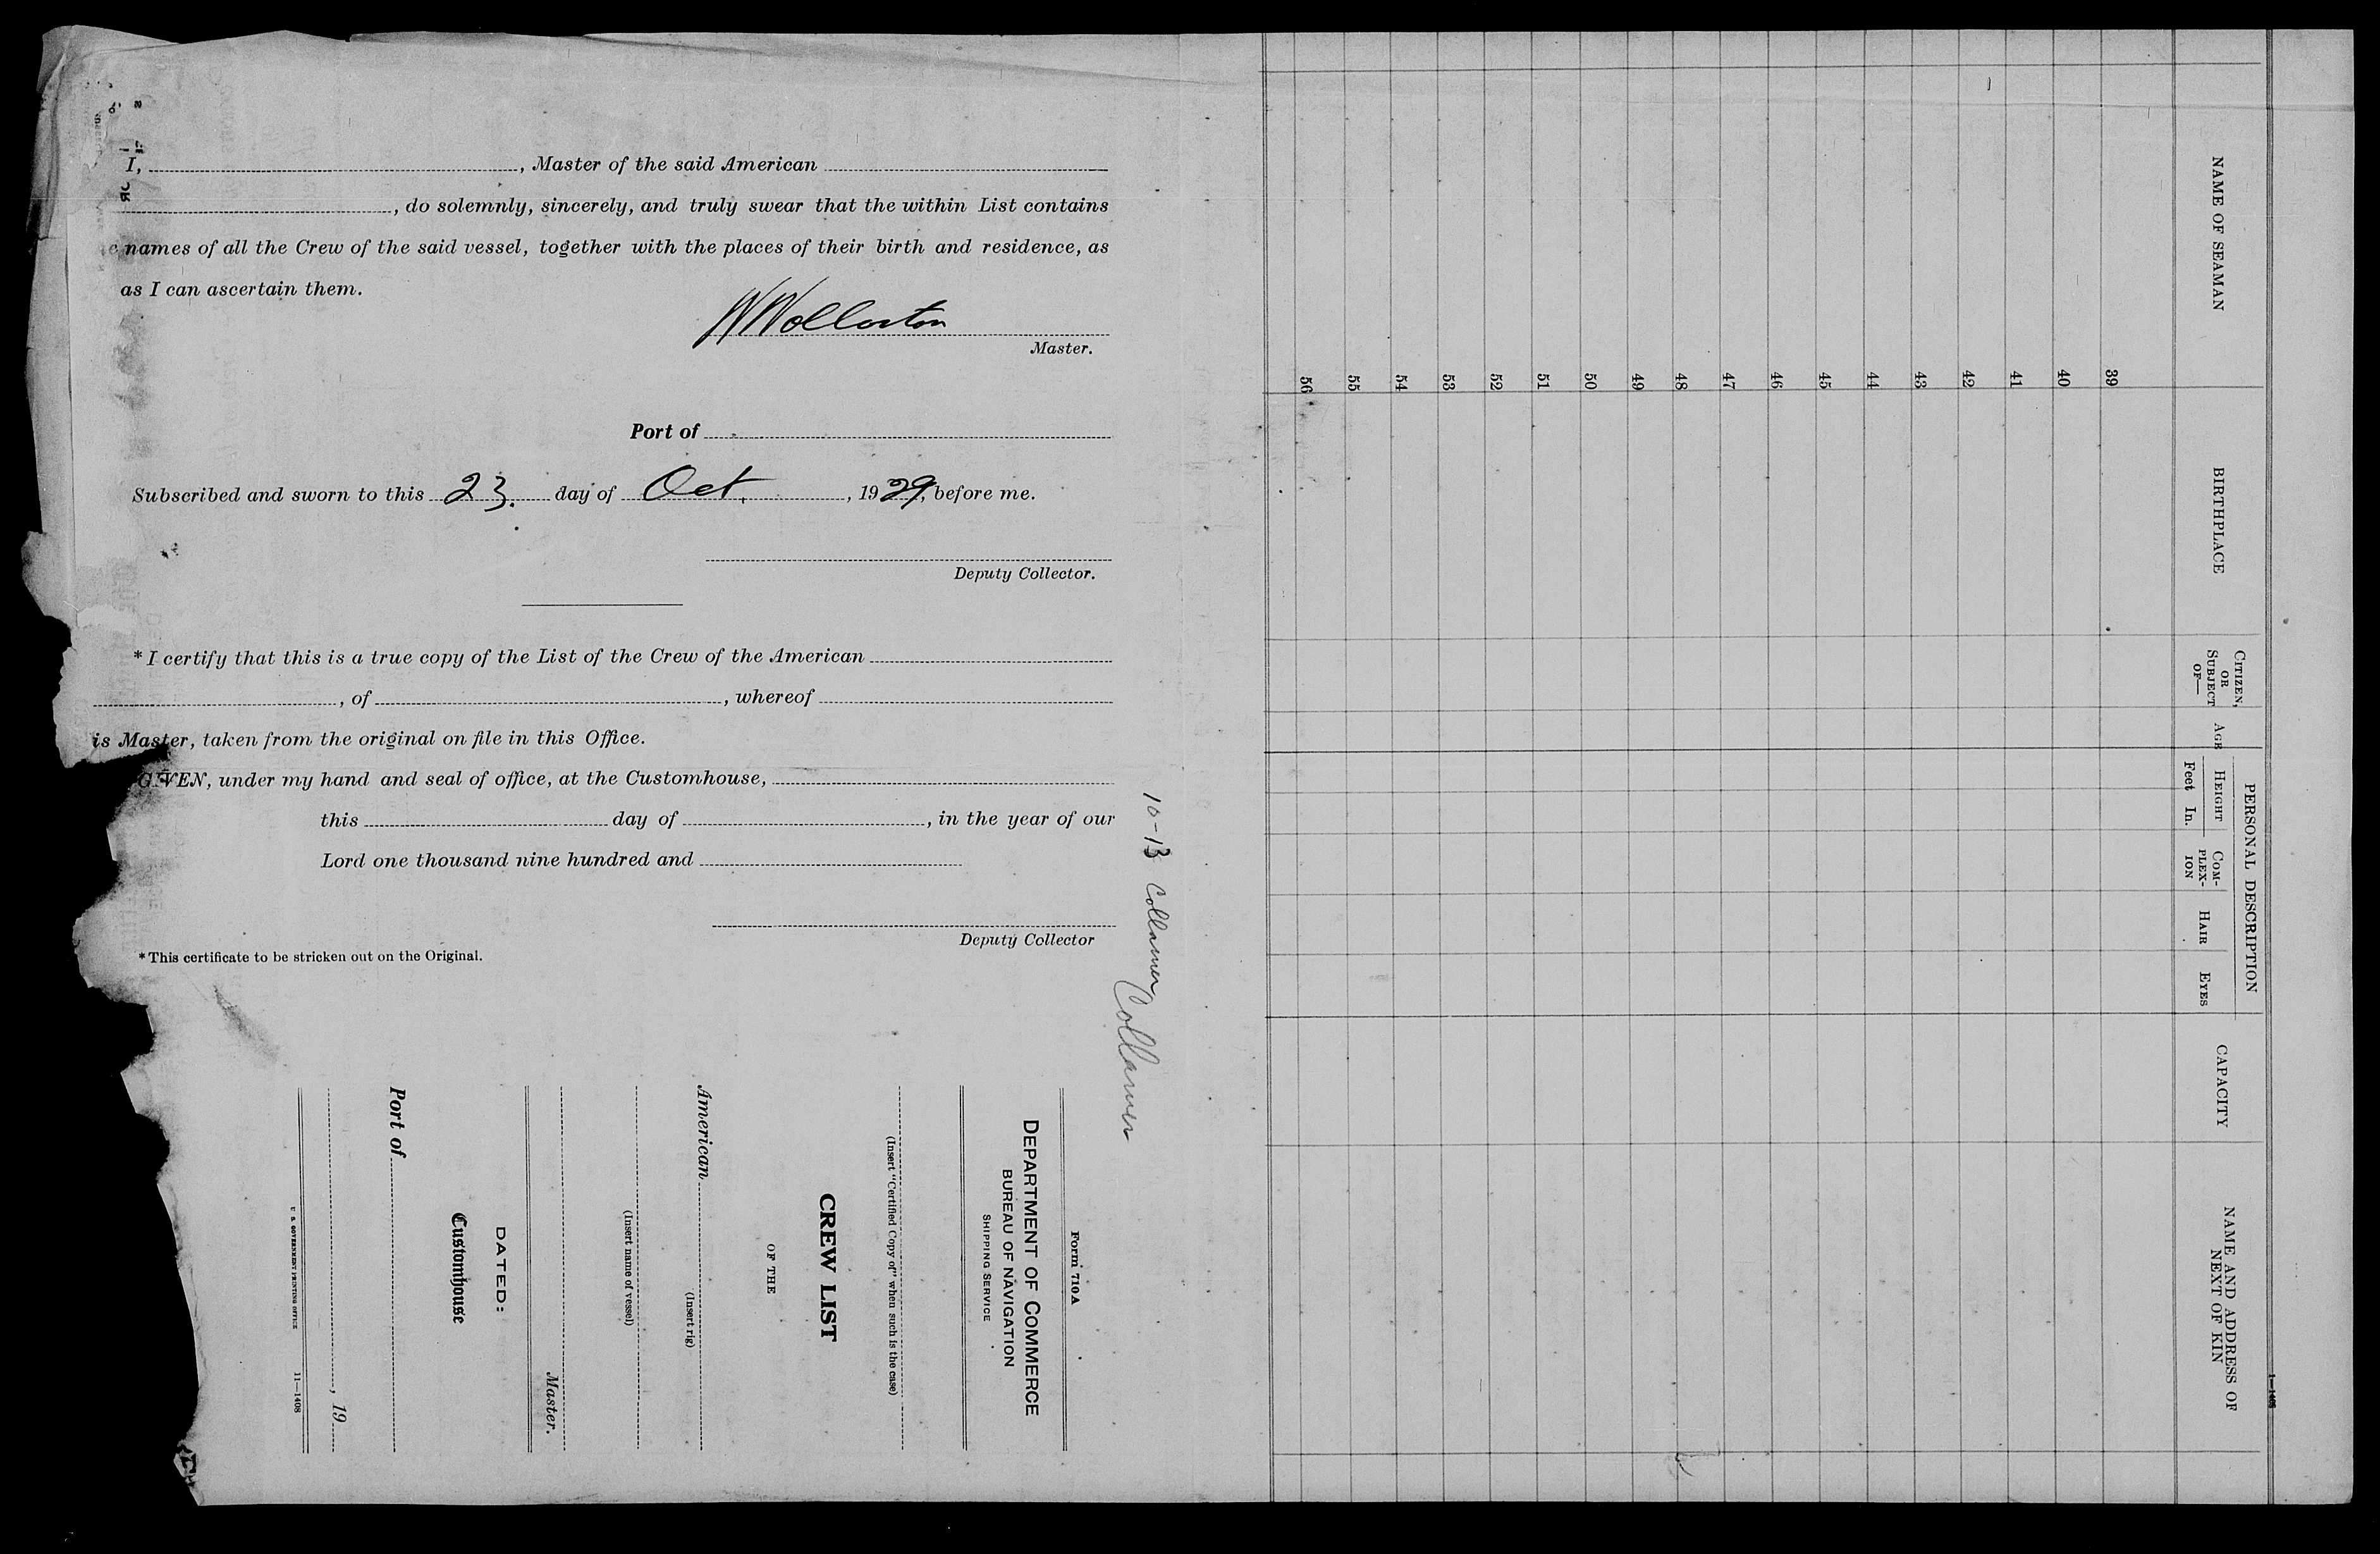 I, , Master of the said American
, do solemnly, sincerely, and truly swear that the within List contains
names of all the Crew of the said vessel, together with the places of their birth and residence, as
as I can ascertain them.
W Wollaston
Master.
Port of
Subscribed and sworn to this 23. day of Oct. , 1929, before me.
Deputy Collector.
* I certify that this is a true copy of the List of the Crew of the American
, of , whereof
is Master, taken from the original on file in this Office.
GIVEN, under my hand and seal of office, at the Customhouse,
this day of , in the year of our
Lord one thousand nine hundred and
Deputy Collector
* This certificate to be stricken out on the Original.
10-13 Collamer
Collamer
Form 710 A
DEPARTMENT OF COMMERCE
BUREAU OF NAVIGATION
SHIPPING SERVICE
(Insert "Certified Copy of" when such is the case)
CREW LIST
OF THE
American
(Insert rig)
(Insert name of vessel)
Master.
DATED:
Customhouse
Port of
, 19
U. S. GOVERNMENT PRINTING OFFICE 11—1408
NAME OF SEAMAN
BIRTHPLACE
CITIZEN, OR SUBJECT OF—
AGE
PERSONAL DESCRIPTION
HEIGHT
Feet In.
COM-
PLEX-
ION
HAIR
EYES
CAPACITY
NAME AND ADDRESS OF
NEXT OF KIN
39
40
41
42
43
44
45
46
47
48
49
50
51
52
53
54
55
56